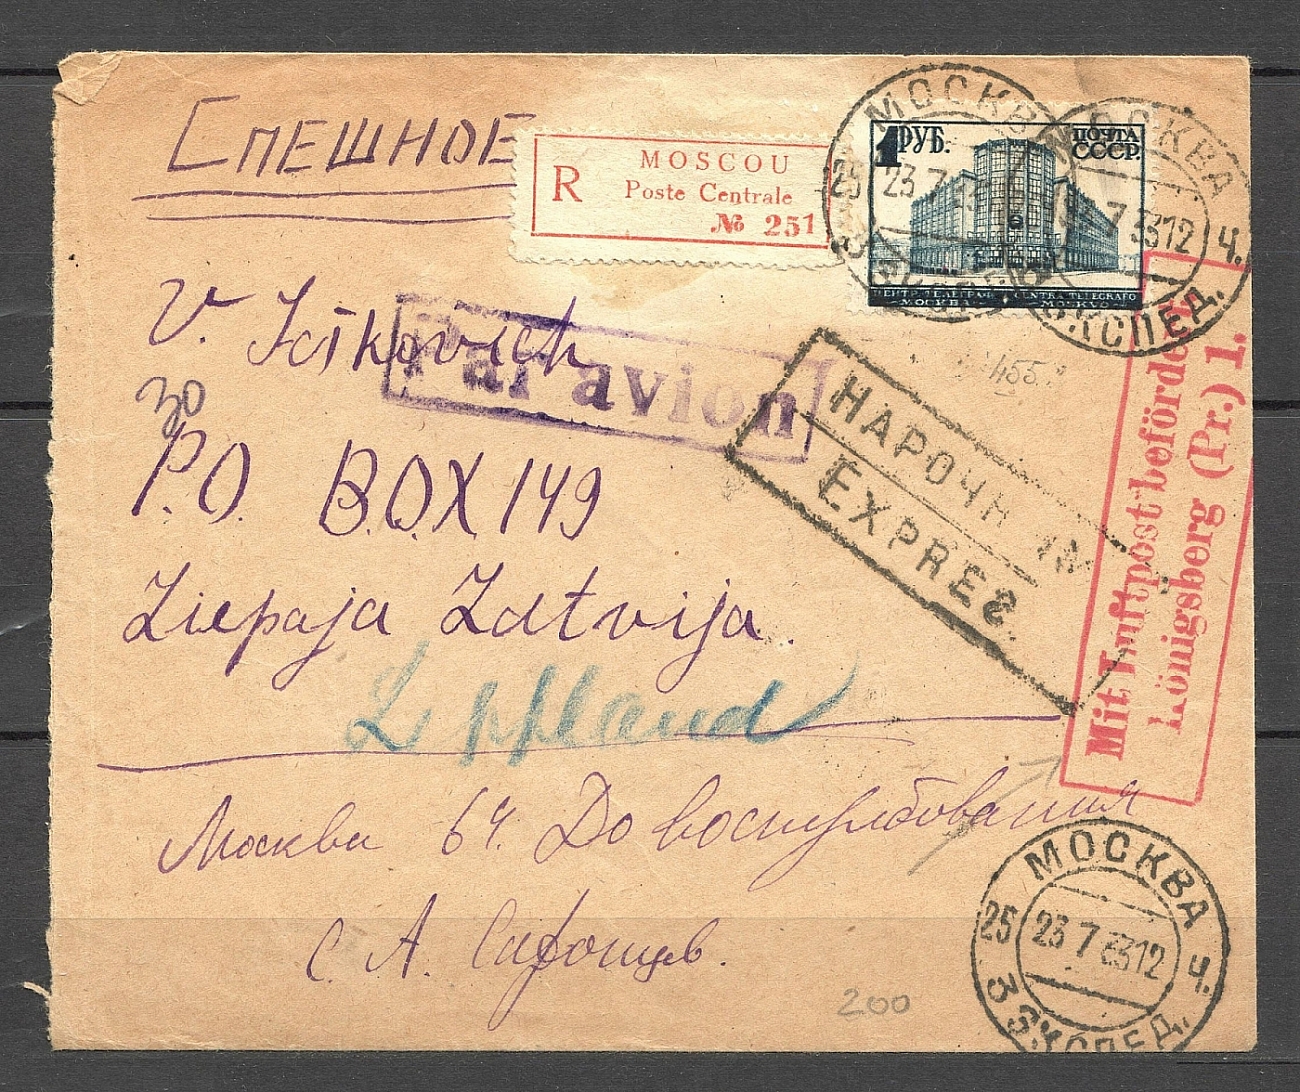 Спешное
R
MOSCOU
Poste Centrale
№ 251
1 РУБ.
ПОЧТА
СССР.
МОСКВА
23 7
25
МОСКВА
7 33 12 ч.
ЭКСПЕД.
Par avion
V.
30
P.O. B.O.X 149
Liepaja Latvija.
НАРОЧН
EXPRES
455
Mit Luftpost befördert
Königsberg (Pr.) 1.
Москва 64. До востребования
С. А.
200
МОСКВА
25 23 7 33 12 ч.
3 ЭКСПЕД.